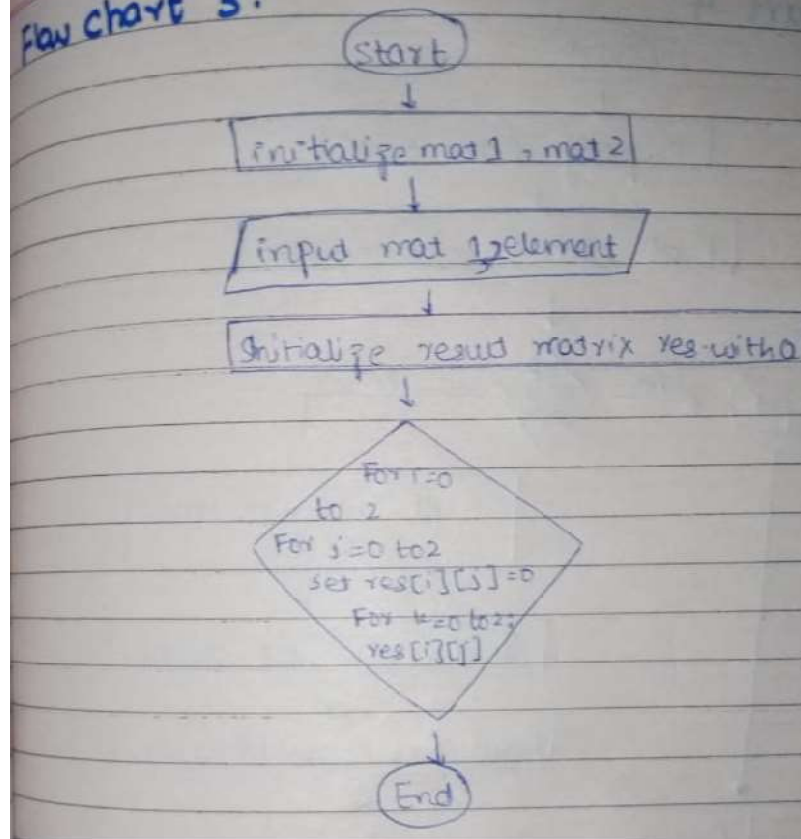 Flow chart 3.
Start
initialize mat1, mat2
input mat 1,2 element
Initialize result matrix res with 0
For i=0
to 2
For j=0 to 2
set res[i][j]=0
For k=0 to 2;
res[i][j]
End